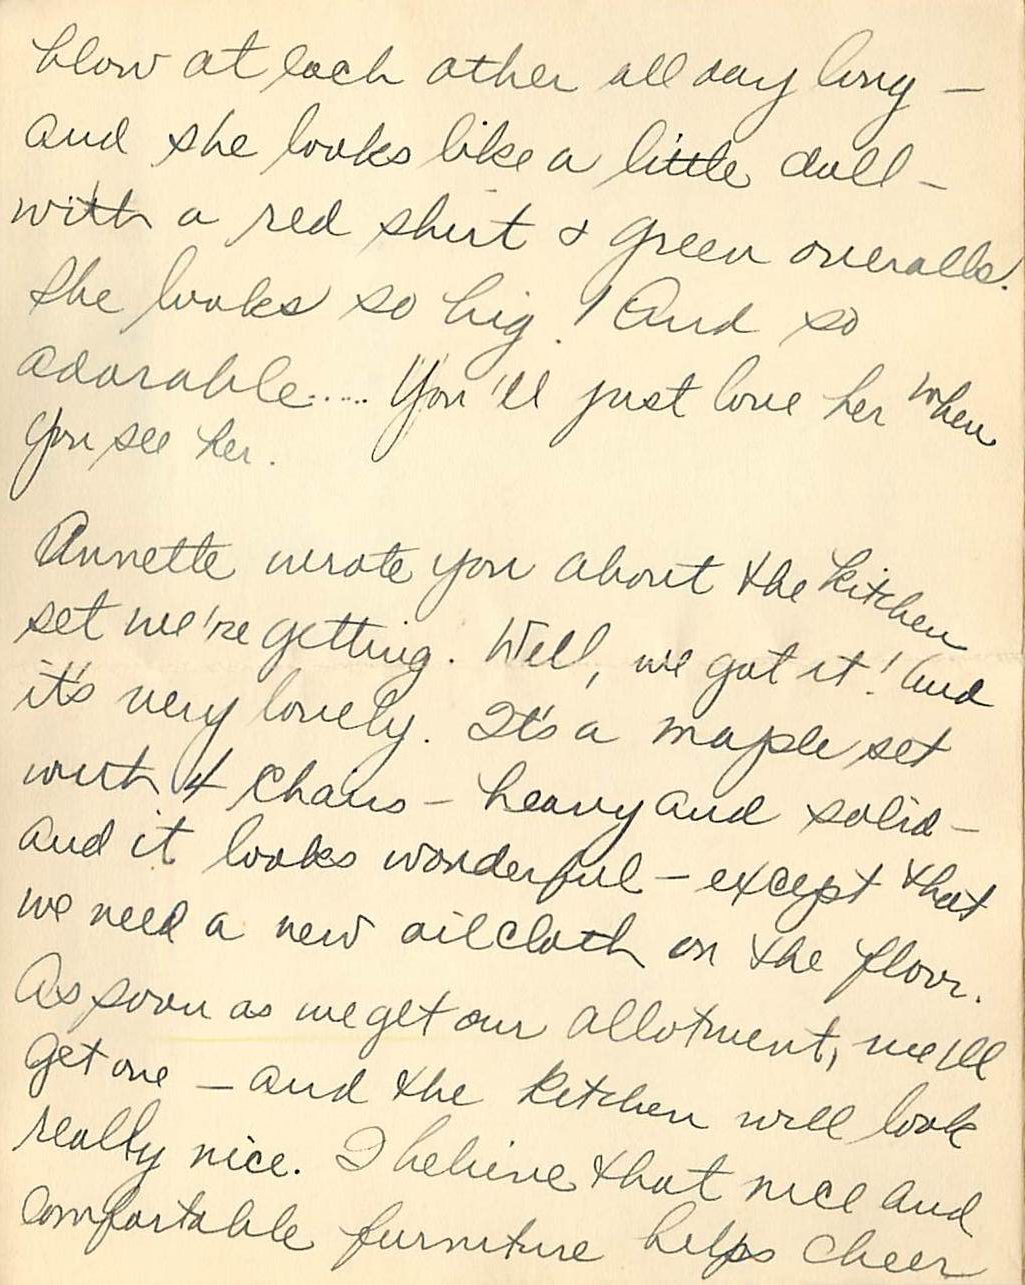 blow at each other all day long –
and she looks like a little doll –
with a red shirt & green overalls.
She looks so big! And so
adorable..... You'll just love her when
you see her.
Annette wrote you about the kitchen
set we're getting. Well, we got it! And
it's very lovely. It's a maple set
with 4 chairs – heavy and solid –
and it looks wonderful – except that
we need a new oilcloth on the floor.
As soon as we get our allotment, we'll
get one – and the kitchen will look
really nice. I believe that nice and
comfortable furniture helps cheer